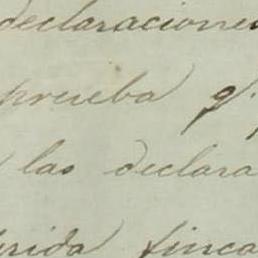 declaraciones
prueba q.
las declara
rida finca